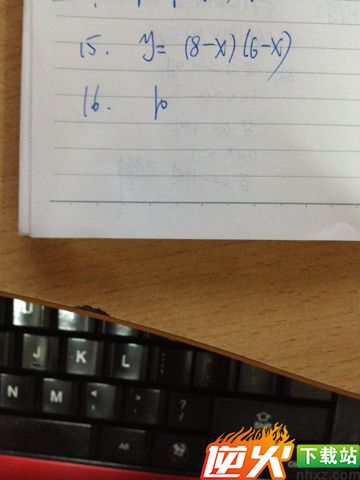 15. y = (8-x)(6-x)
16. 10
U
J K L
N M < , > . ? /
Alt
逆火 下载站
nhxz.com